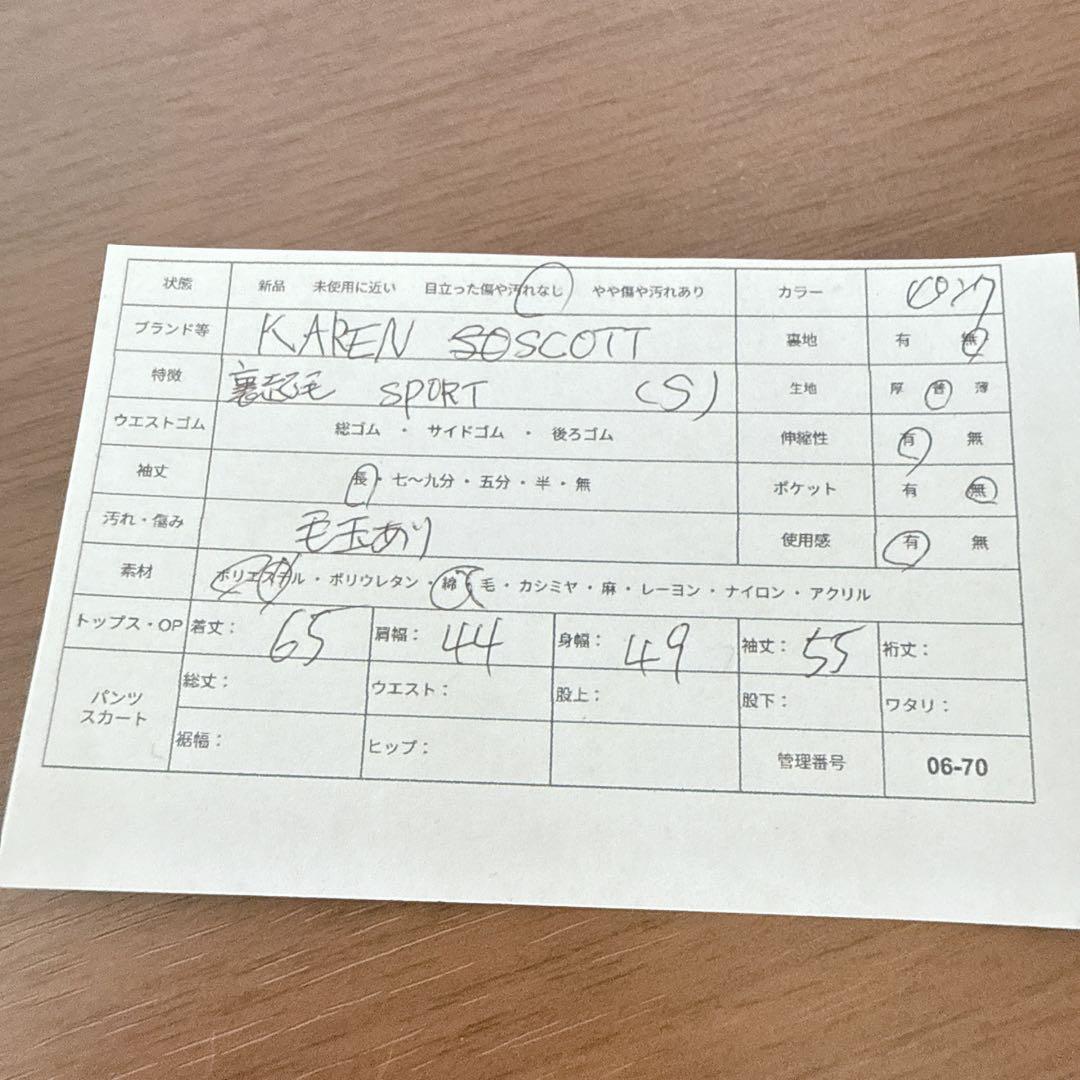 状態 新品 未使用に近い 目立った傷や汚れなし やや傷や汚れあり カラー ピンク
ブランド等 KAREN SOSCOTT 裏地 有 無
特徴 裏起毛 SPORT (S) 生地 厚 普 薄
ウエストゴム 総ゴム ・ サイドゴム ・ 後ろゴム 伸縮性 有 無
袖丈 長・七〜九分・五分・半・無 ポケット 有 無
汚れ・傷み 毛玉あり 使用感 有 無
素材 ポリエステル・ポリウレタン・綿・毛・カシミヤ・麻・レーヨン・ナイロン・アクリル
トップス・OP 着丈： 65 肩幅： 44 身幅： 49 袖丈： 55 裄丈：
パンツ スカート 総丈： ウエスト： 股上： 股下： ワタリ：
裾幅： ヒップ： 管理番号 06-70